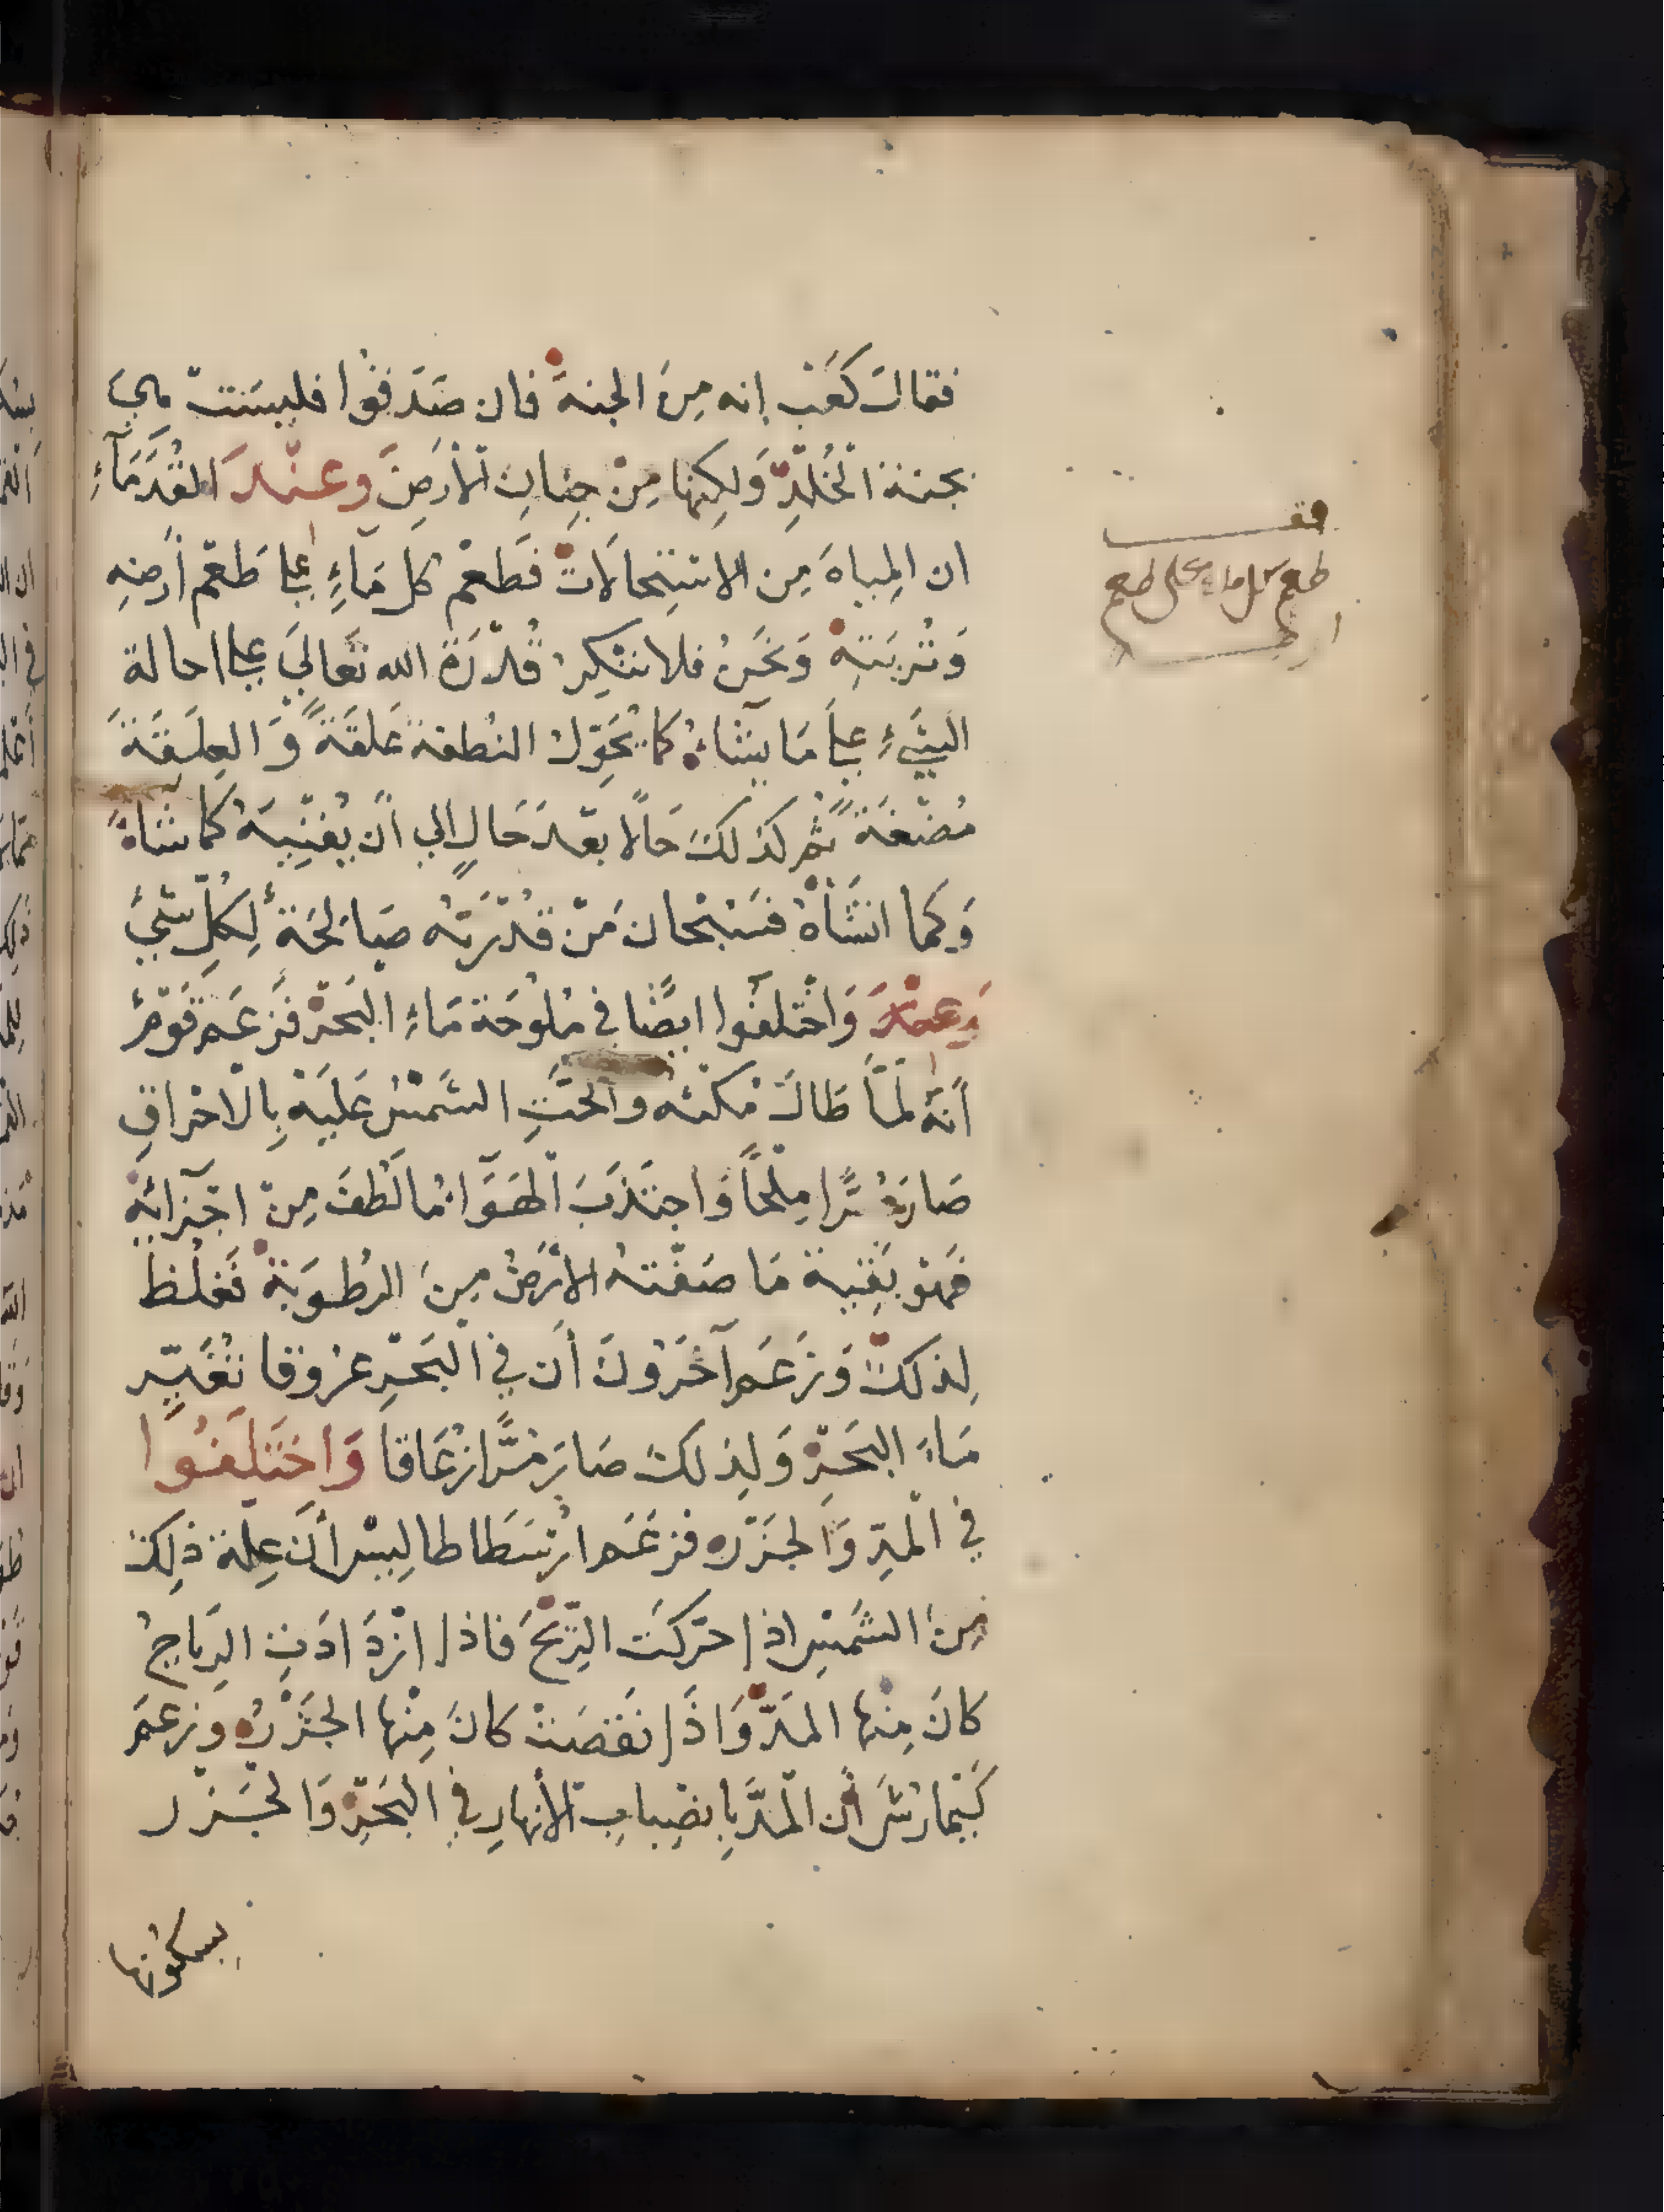 فقال كَعَب إنه مِنَ الجنة فان صَدَقوُا فليسَت هِيَ
بجنة الخُلْدِ وَلكِنها مِنْ جِنانِ الأرضِ وعنْدَ القُدَمَآءِ
ان المِياهَ مِن الاسْتِحالَاتْ فَطَعْم كل مَآءٍ على طَعْم أرضِهِ
وَتُربَتِهْ وَنَحَنُ فلا ننْكِر قُدْرَة الله تَعَالَى على احالة
الشَيْءِ على مَا يشَاءُ كَما يُحَوِّل النُطفة عَلقَةً وَ العَلَقَة
مُضْغَةً ثم كذلك حَالًا بعْدَ حَالٍ الي أن يُفنِيَهُ كما شاءَ
وَكما انشَأهُ فسُبْحان مَنْ قُدْرَتُه صَالحَة لِكلِّ شَيْءٍ
وَعنْدَ وَاخْتلفُوا ايضًا في مُلوُحَة مَاءِ البَحَرْ فزعَم قَومٌ
أنّهُ لمّا طَالَ مُكثهُ والحَّتِ الشَمْسُ عَليَهْ بِالاحْراقِ
صَارَ مُرًّا مِلحًا وَاجتَذبَ الهَوَاءُ مَا لَطفَ مِنْ اجْزآئهِ
فهوَ بَقِية مَا صَفّتهُ الأرضُ مِنَ الرطُوبَة فَغلُظ
لِذلكَ وَزعَم آخَرُونَ أن في البَحْرِ عرُوقا تُغَيّر
مَاءَ البَحَرْ وَلِذلكَ صَارَ مُرًّا زُعَاقا وَاخَتلَفوُا
في المَدِّ وَالجَزْره فزعَم ارْسَطاطاليسْ أن عِلة ذلِكَ
مِنَ الشَمْسِ اذا حرّكَت الرّيحَ فاذا ازْدَادَتِ الرِياحُ
كانَ مِنْها المَدّ وَاذَا نقَصَتْ كانَ مِنْها الجَزْرُه وَزعَمَ
كَيْمارُش أن المَدّ بِانصِبابِ الأنهارِ في البَحْرِ وَالجَزر
بسكُونها
قف
طعم كل ماء على طعم
ارضه